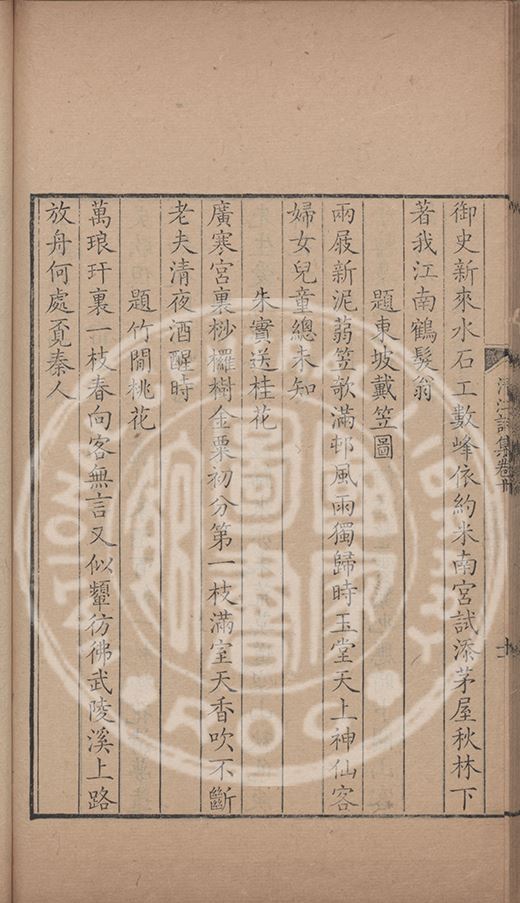 御史新來水石工數峰依約米南宮試添茅屋秋林下
著我江南鶴髮翁
題東坡戴笠圖
兩屐新泥蒻笠欹滿邨風雨獨歸時玉堂天上神仙客
婦女兒童總未知
朱實送桂花
廣寒宮裏桫欏樹金粟初分第一枝滿室天香吹不斷
老夫清夜酒醒時
題竹閒桃花
萬琅玕裏一枝春向客無言又似顰彷彿武陵溪上路
放舟何處覓秦人